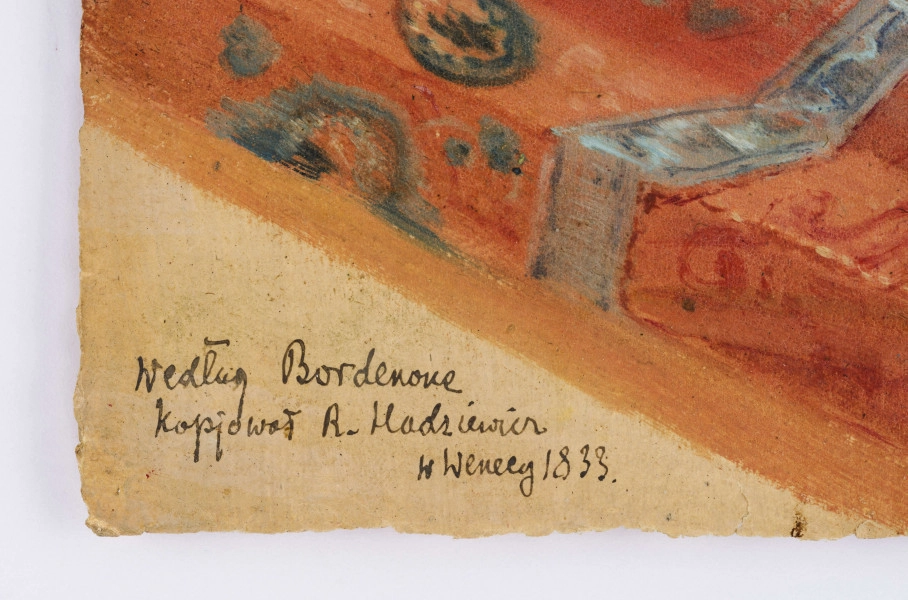 Według Bordenone
kopjował R. Hadziewicz
w Wenecy 1833.